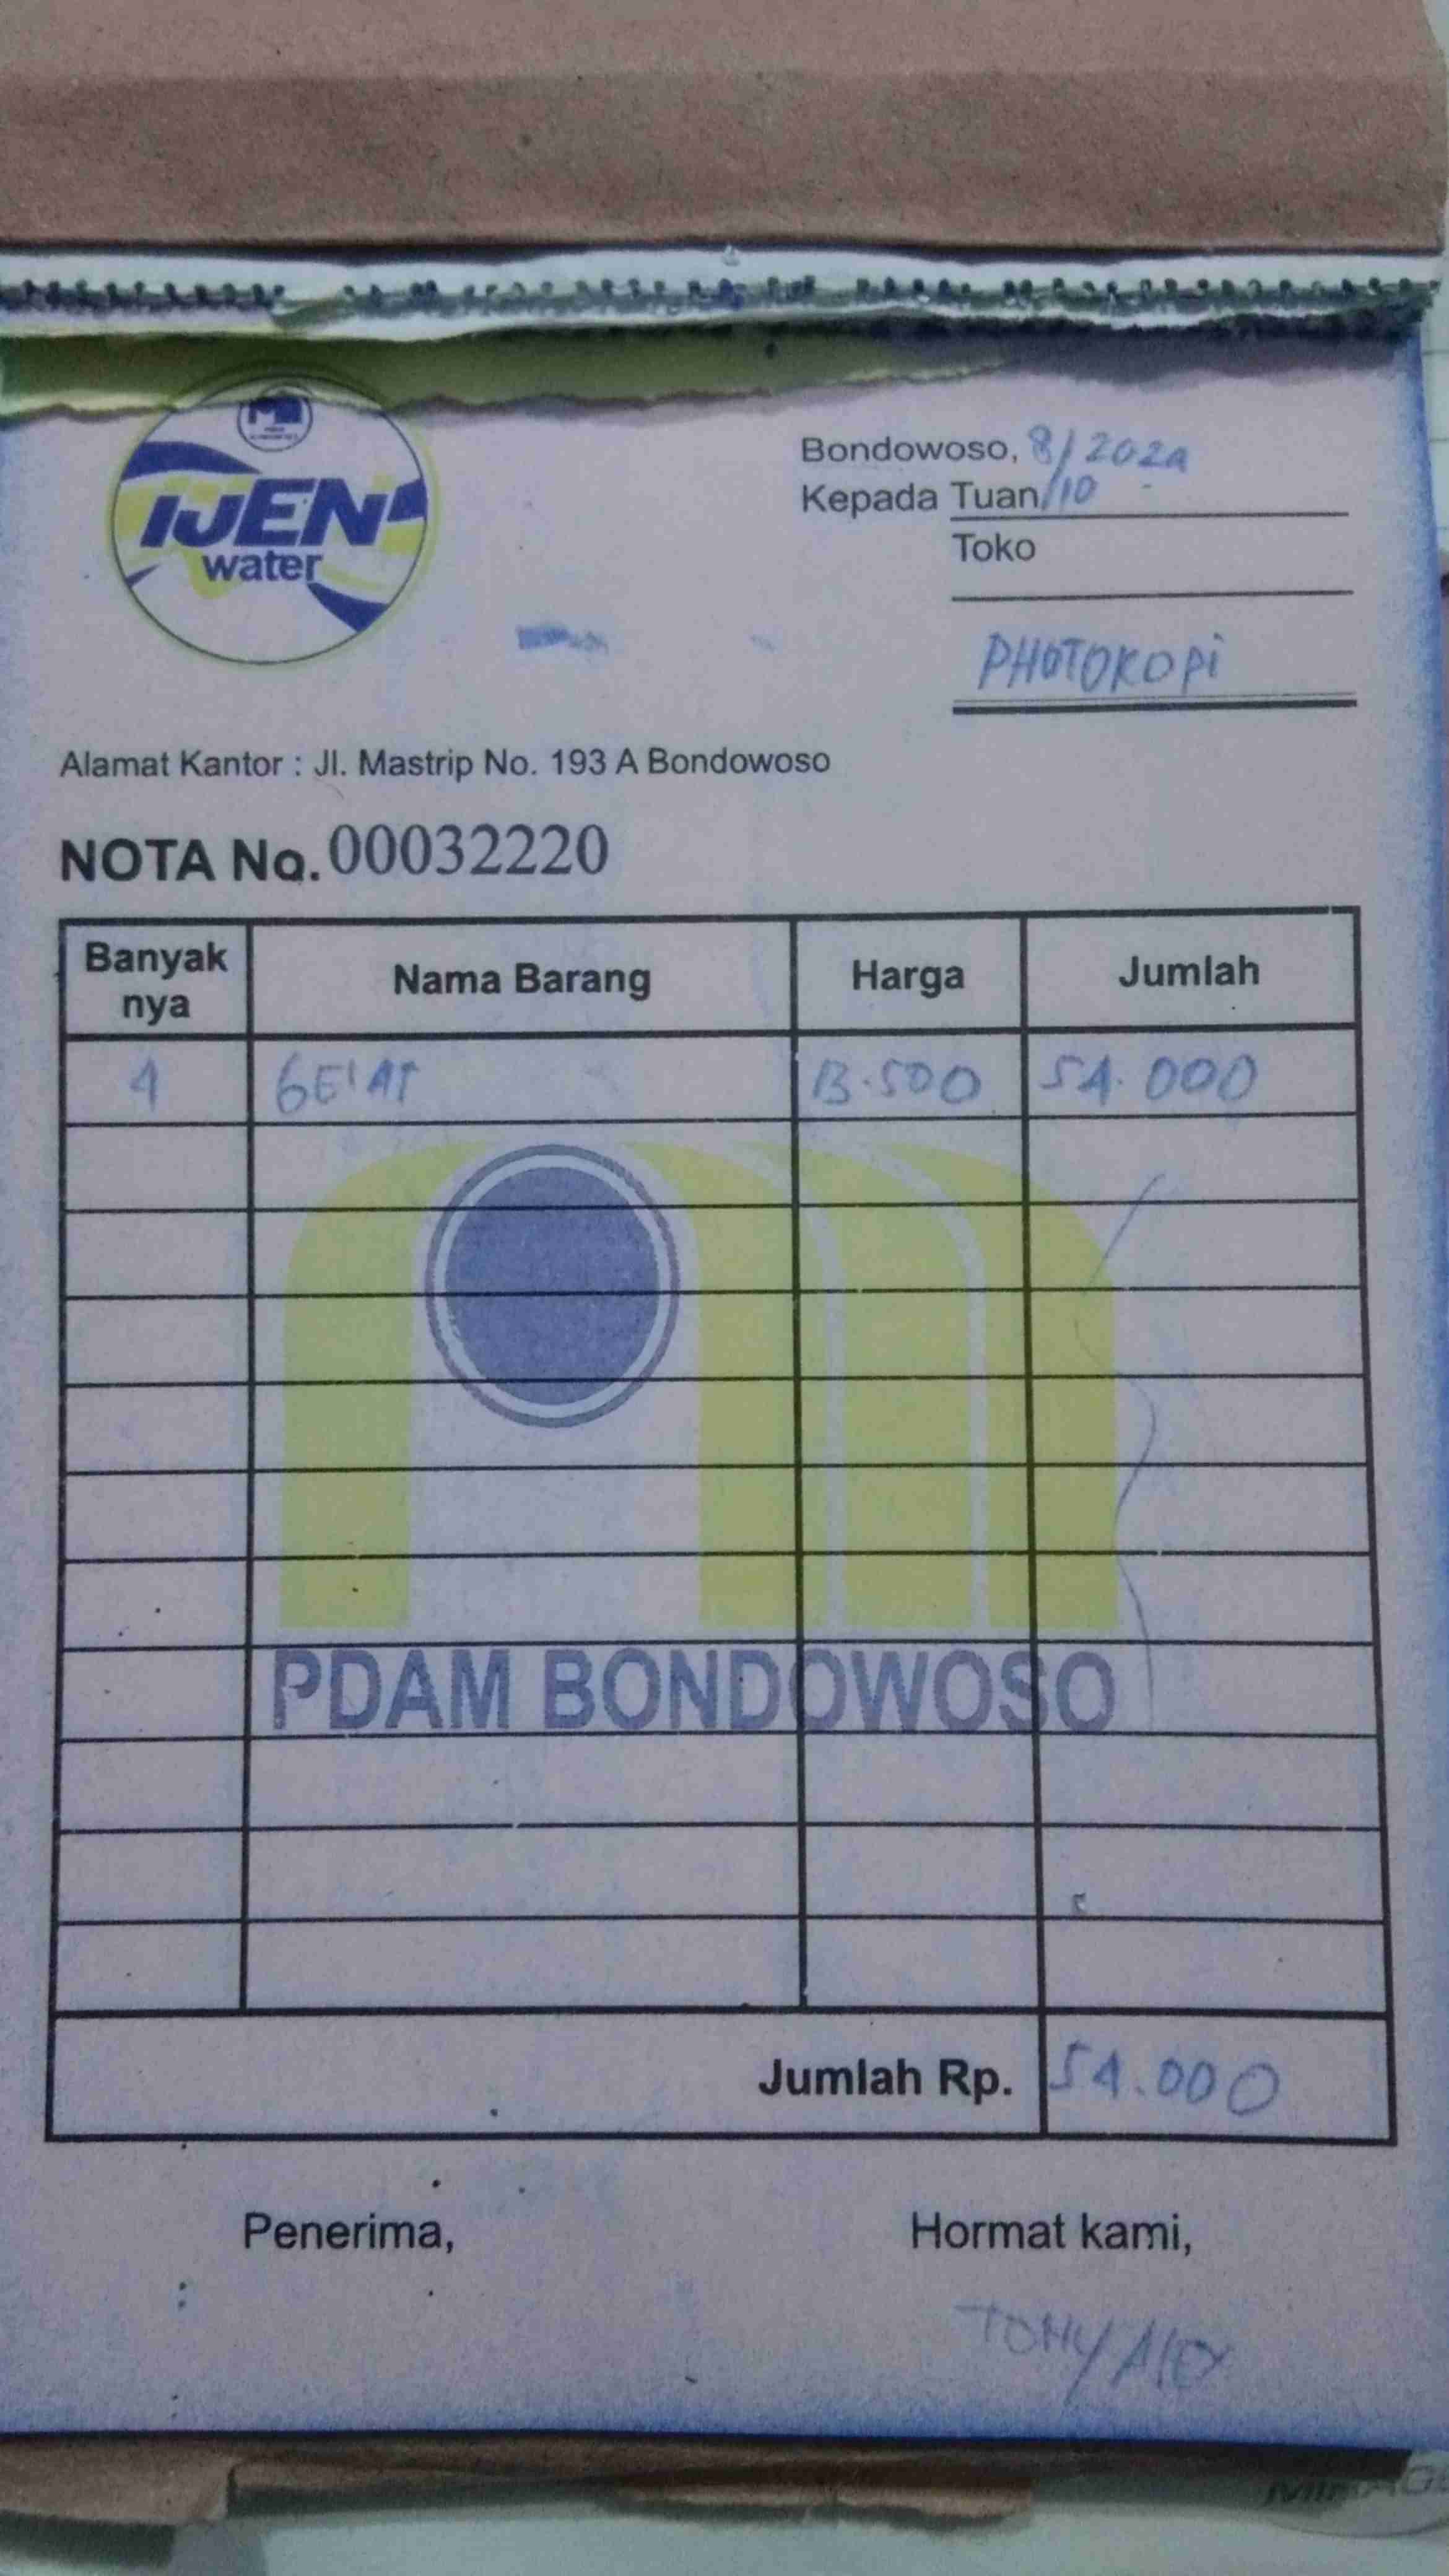 IJEN
water
Bondowoso, 8/2024
Kepada Tuan /10
Toko
PHOTOKOPi
Alamat Kantor : Jl. Mastrip No. 193 A Bondowoso
NOTA No. 00032220
Banyak nya Nama Barang Harga Jumlah
4 GElAS 13.500 54.000
PDAM BONDOWOSO
Jumlah Rp. 54.000
Penerima, Hormat kami,
TONY/Alex